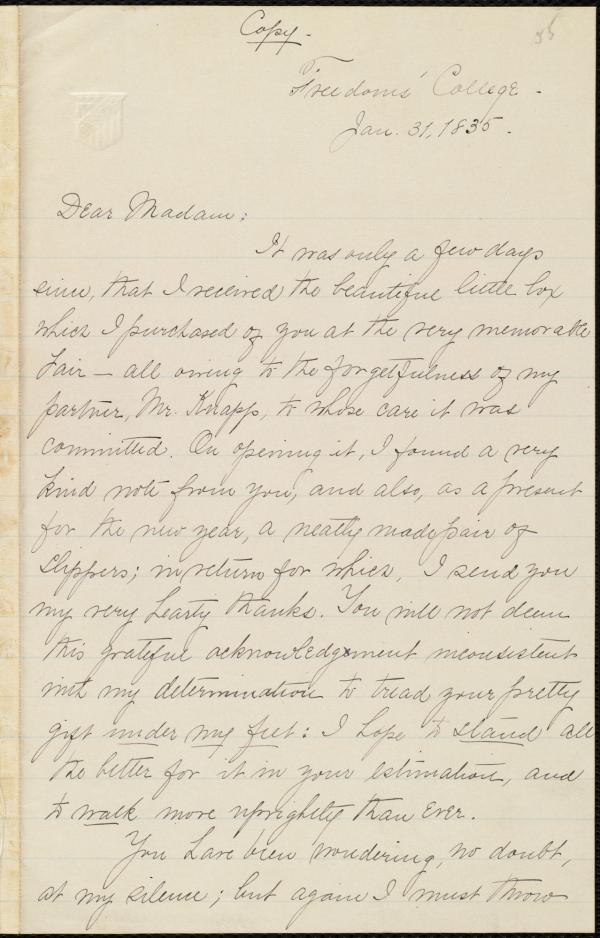 Copy.
55
Freedoms' College.
Jan. 31, 1835.
Dear Madam:
It was only a few days
since, that I received the beautiful little box
which I purchased of you at the very memorable
Fair — all owing to the forgetfulness of my
partner, Mr. Knapp, to whose care it was
committed. On opening it, I found a very
kind note from you, and also, as a present
for the new year, a neatly made pair of
slippers; in return for which, I send you
my very hearty thanks. You will not deem
this grateful acknowledgement inconsistent
with my determination to tread your pretty
gift under my feet: I hope to stand all
the better for it in your estimation, and
to walk more uprightly than ever.
You have been wondering, no doubt,
at my silence; but again I must throw